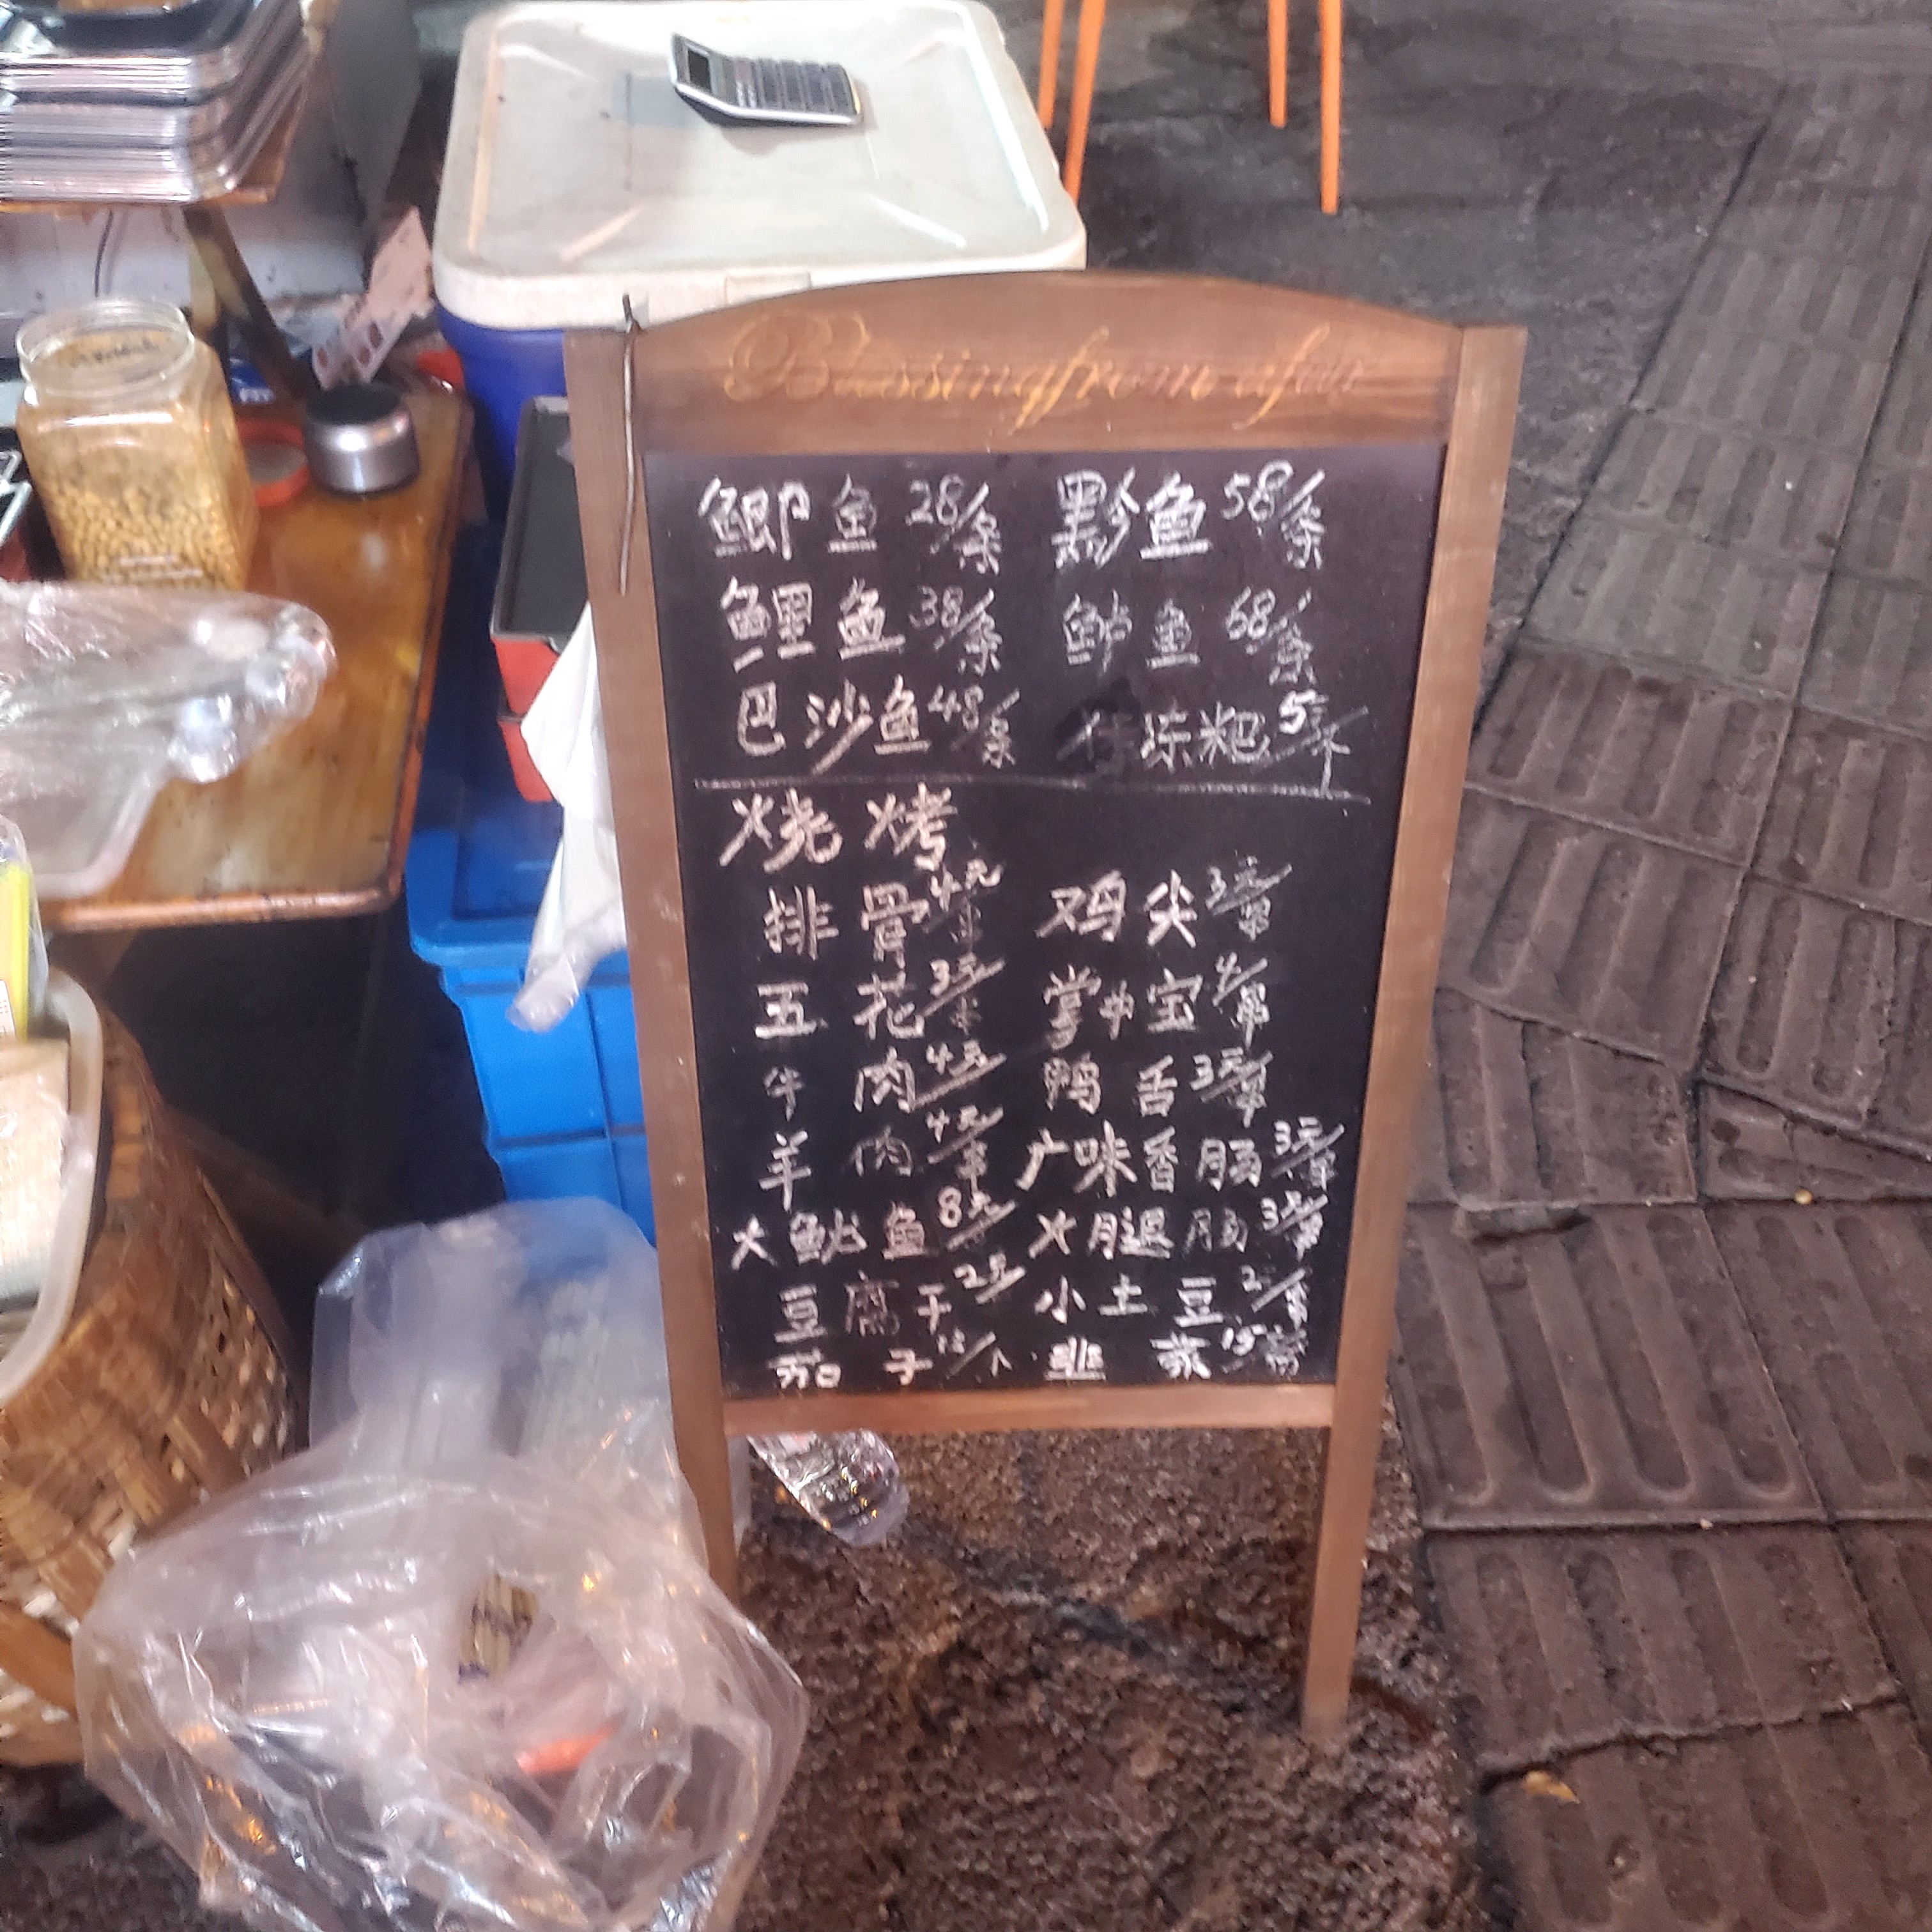 Blessing from afar
鲫鱼28/条 黔鱼58/条
鲤鱼38/条 鲈鱼68/条
巴沙鱼48/条 粑5元/个
烧烤
排骨4元/串 鸡尖3元/串
五花3元/串 掌中宝4/串
牛肉4元/ 鸭舌3元/串
羊肉4元/串 广味香肠3元/串
大鱿鱼8元/ 火腿肠3元/串
豆腐干2元/ 小土豆2/串
茄子12/个 韭菜15/